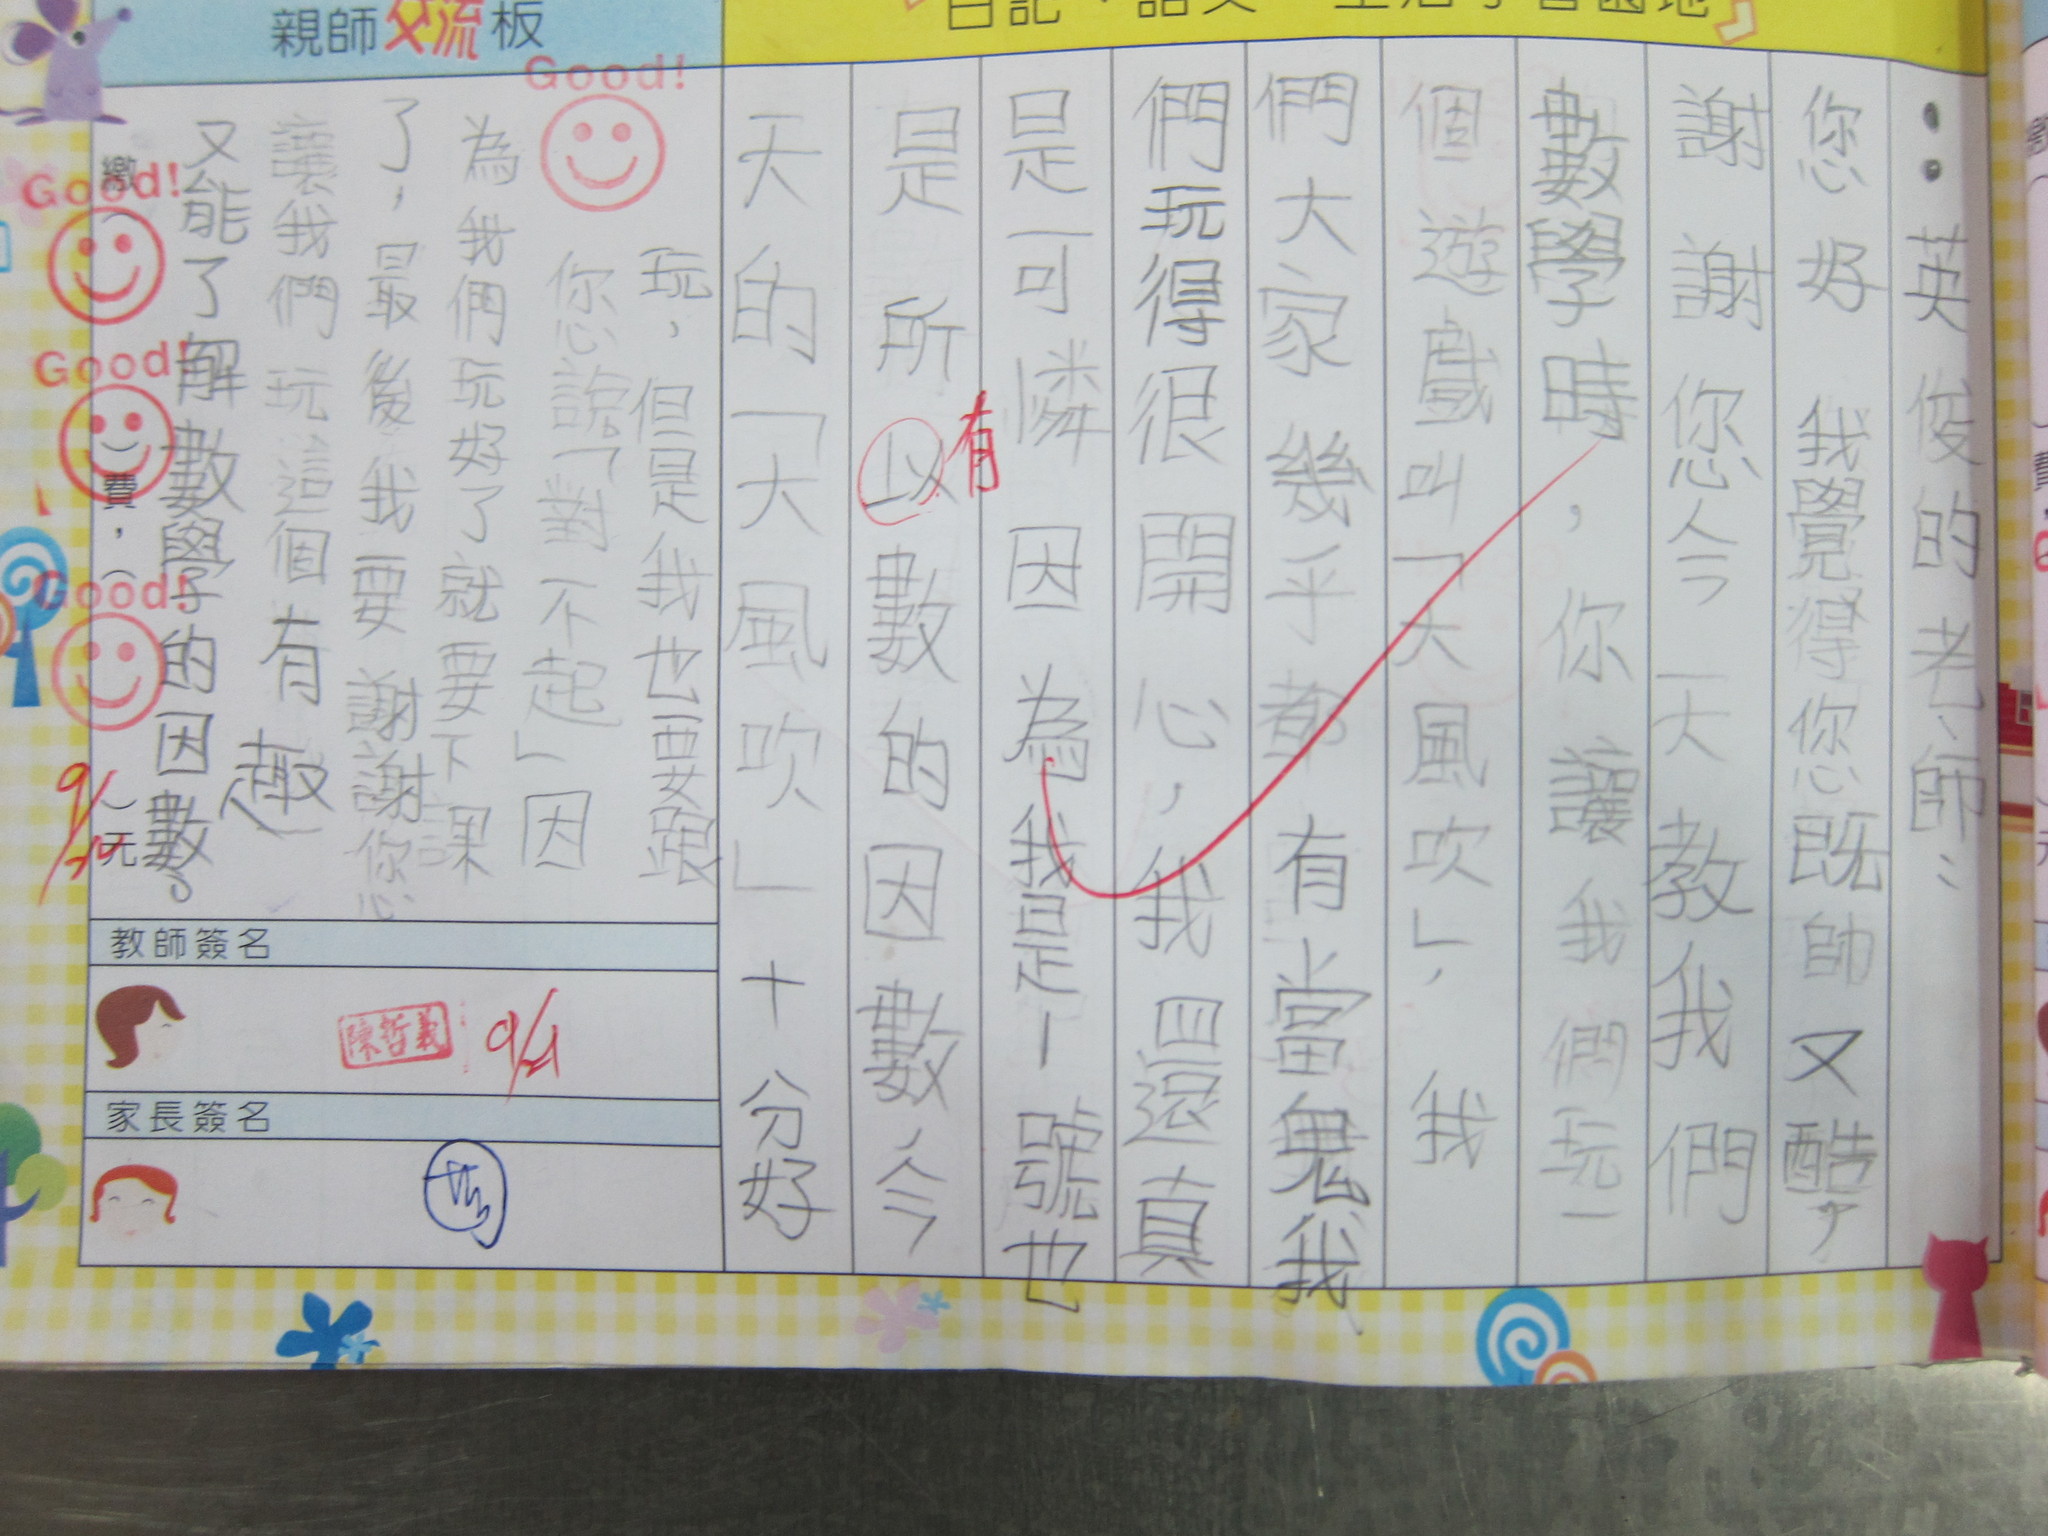 親師交流板
英俊的老師：
您好 我覺得您既帥又酷，
謝謝您今天教我們
數學時，你讓我們玩一
個遊戲叫「大風吹」，我
們大家幾乎都有當鬼我
們玩得很開心，我四還真
是可憐因為我是1號也
是所以數的因數，今
有
天的「大風吹」十分好
玩，但是我也要跟
您說「對不起」因
為我們玩好了就要下課
了，最後我要謝謝您
讓我們玩這個有趣
又能了解數學的因數。
Good!
Good!
Good!
Good!
繳（ ）費，（ ）元
教師簽名
陳哲義
家長簽名